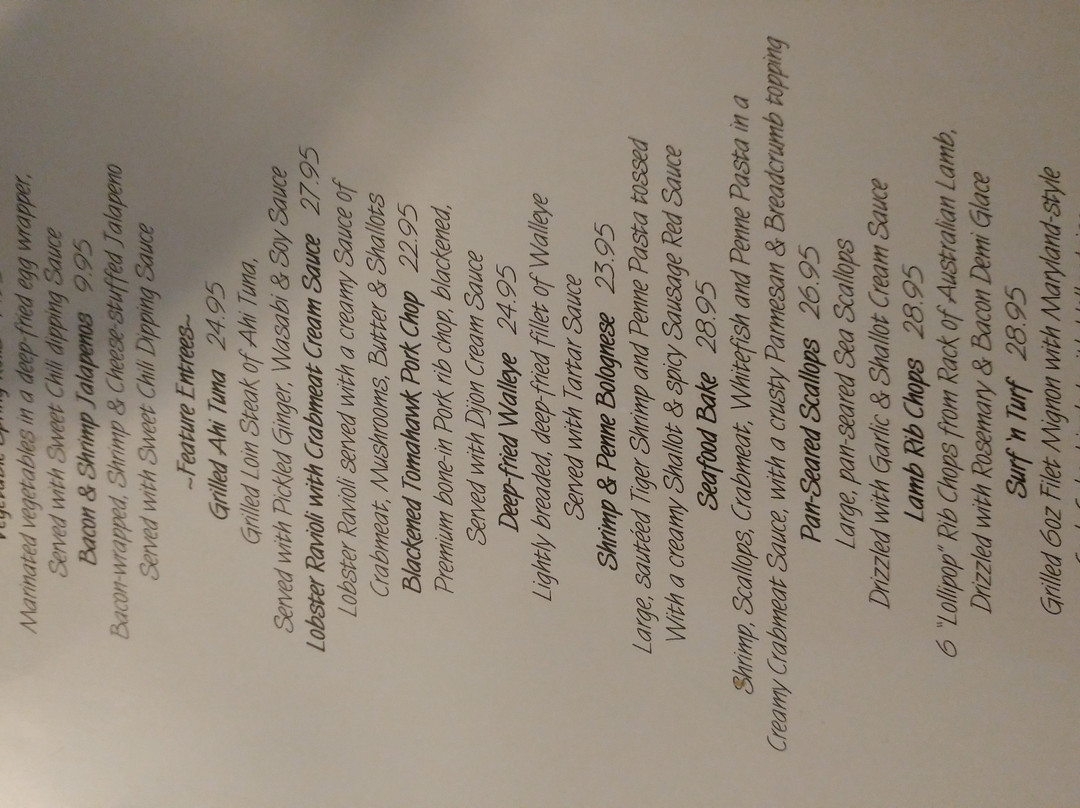 Marinated vegetables in a deep-fried egg wrapper,
Served with Sweet Chili dipping Sauce
Bacon & Shrimp Jalapenos 9.95
Bacon-wrapped, Shrimp & Cheese-stuffed Jalapeno
Served with Sweet Chili Dipping Sauce
~Feature Entrees~
Grilled Ahi Tuna 24.95
Grilled Loin Steak of Ahi Tuna,
Served with Pickled Ginger, Wasabi & Soy Sauce
Lobster Ravioli with Crabmeat Cream Sauce 27.95
Lobster Ravioli served with a creamy Sauce of
Crabmeat, Mushrooms, Butter & Shallots
Blackened Tomahawk Pork Chop 22.95
Premium bone-in Pork rib chop, blackened,
Served with Dijon Cream Sauce
Deep-fried Walleye 24.95
Lightly breaded, deep-fried fillet of Walleye
Served with Tartar Sauce
Shrimp & Penne Bolognese 23.95
Large, sautéed Tiger Shrimp and Penne Pasta tossed
With a creamy Shallot & spicy Sausage Red Sauce
Seafood Bake 28.95
Shrimp, Scallops, Crabmeat, Whitefish and Penne Pasta in a
Creamy Crabmeat Sauce, with a crusty Parmesan & Breadcrumb topping
Pan-Seared Scallops 26.95
Large, pan-seared Sea Scallops
Drizzled with Garlic & Shallot Cream Sauce
Lamb Rib Chops 28.95
6 "Lollipop" Rib Chops from Rack of Australian Lamb,
Drizzled with Rosemary & Bacon Demi Glace
Surf 'n Turf 28.95
Grilled 6oz Filet Mignon with Maryland-style